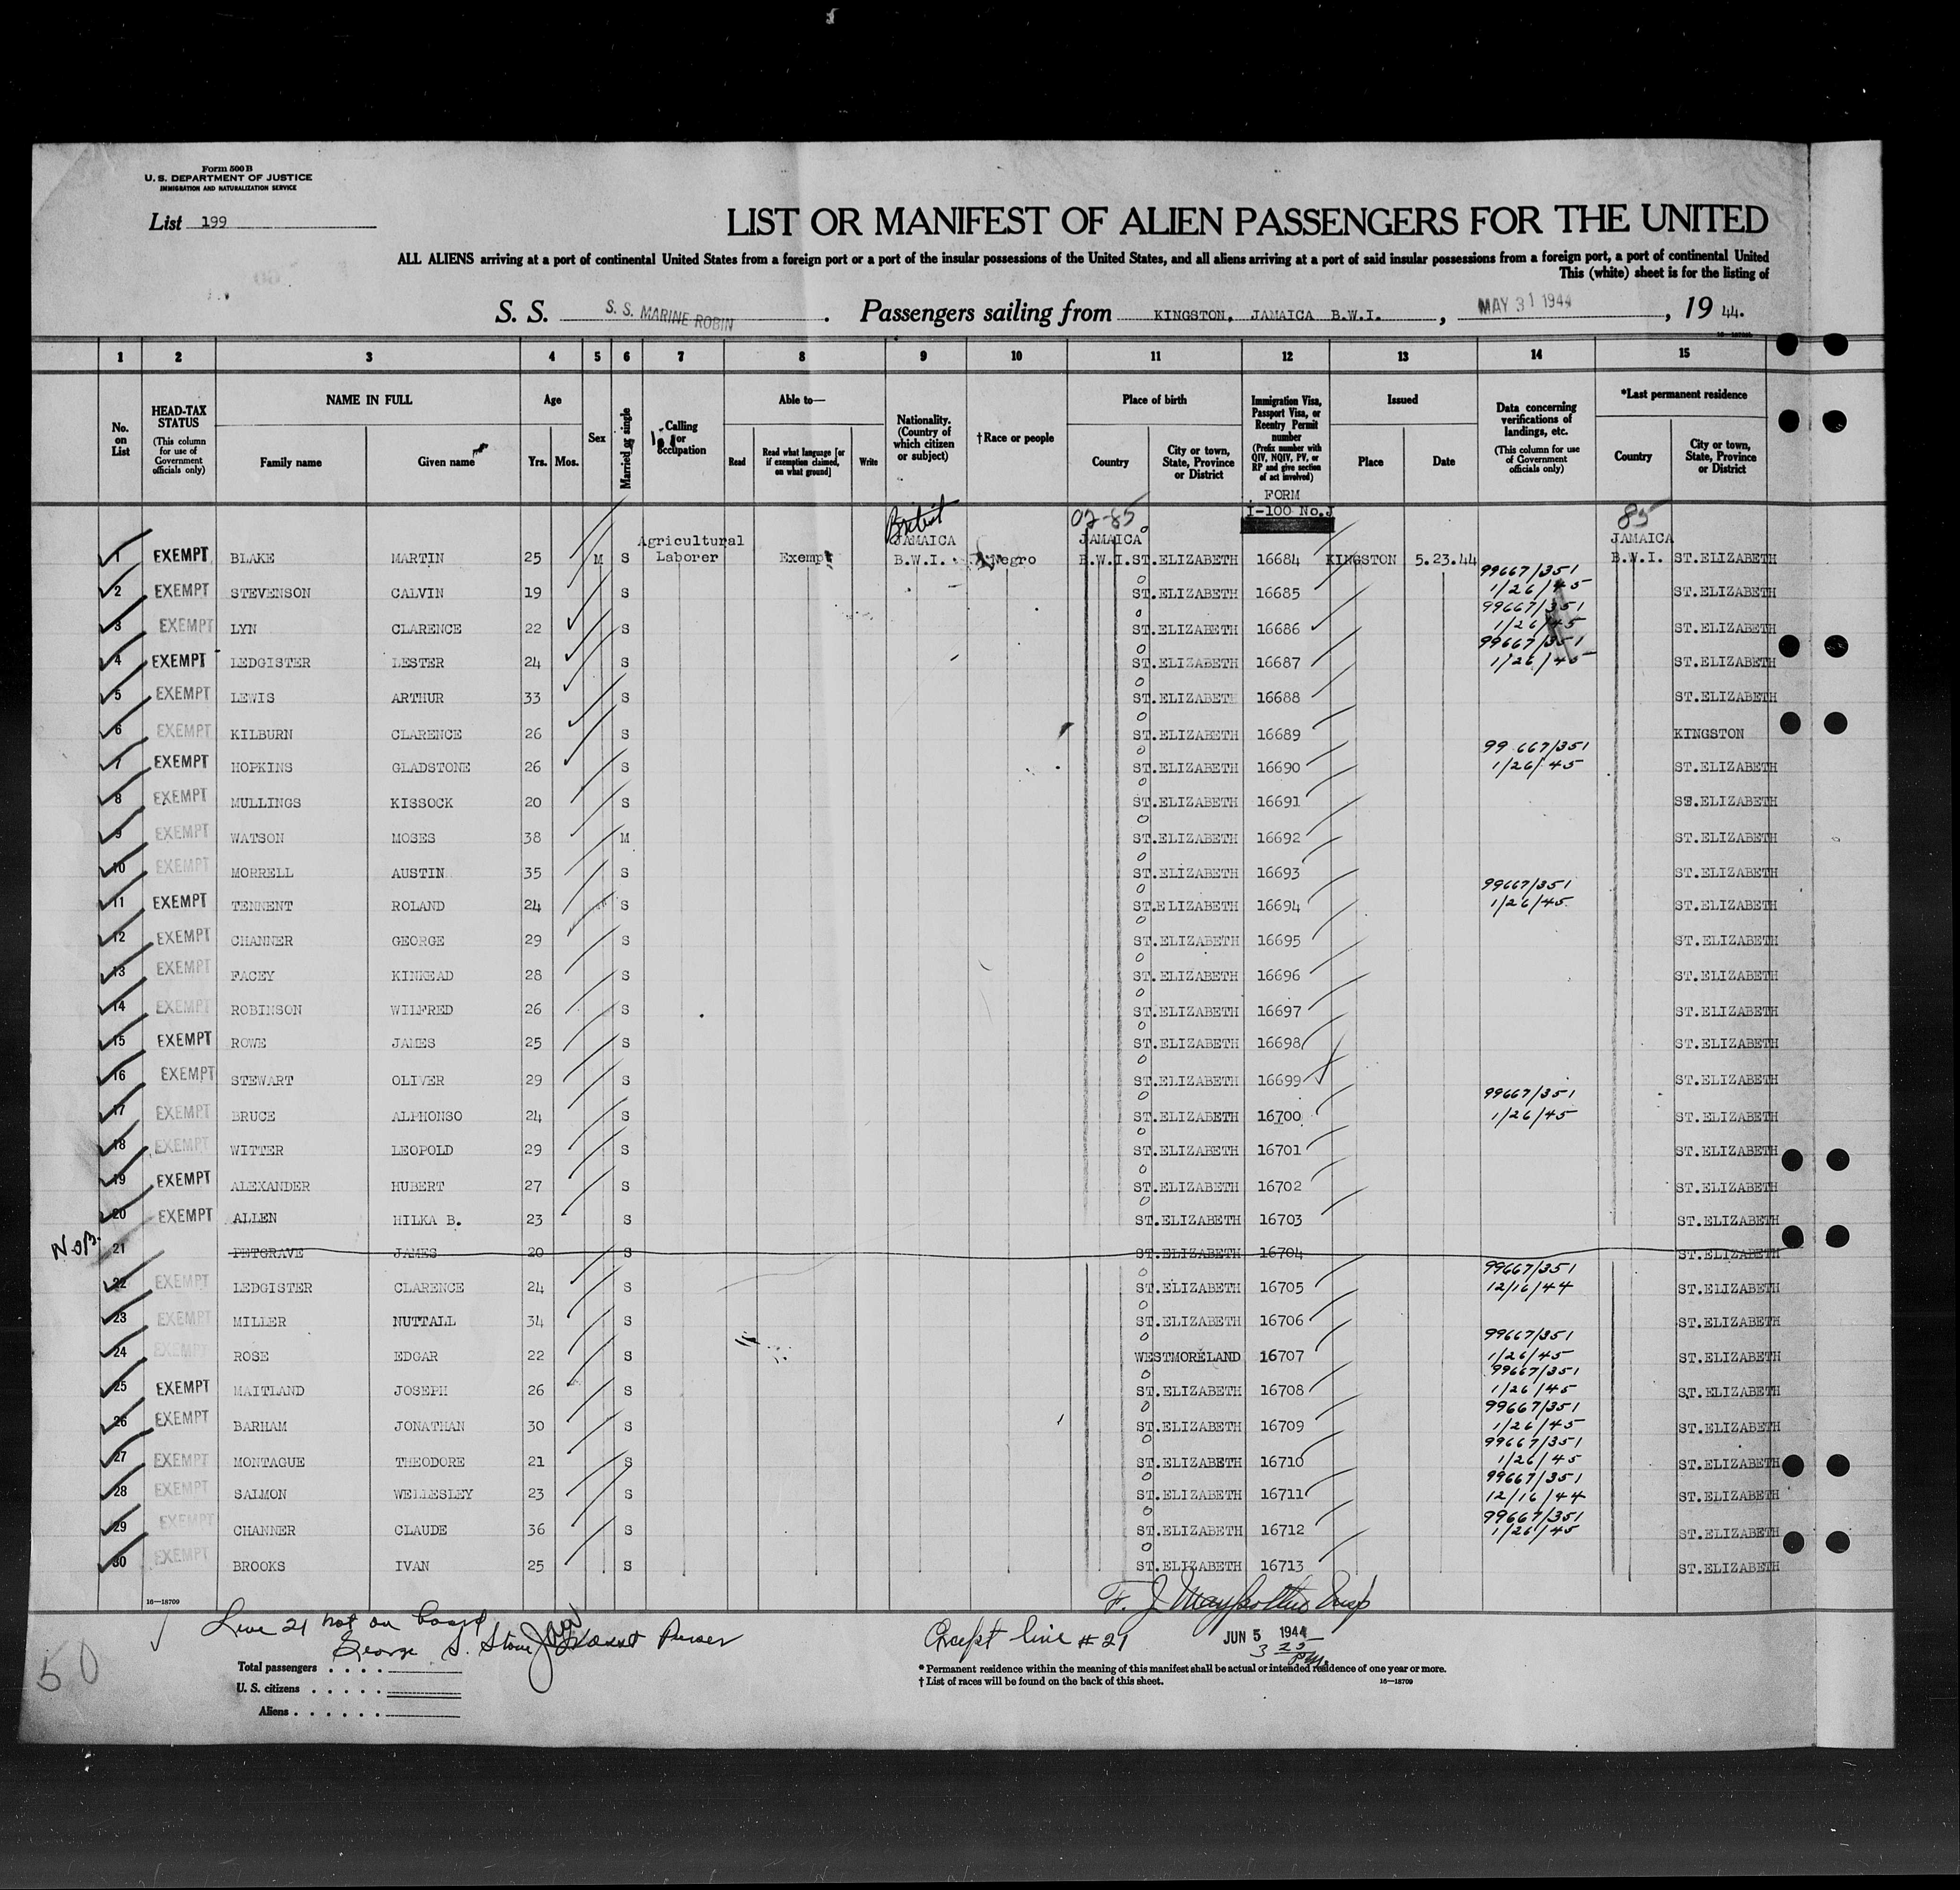 Form 500 B
U. S. DEPARTMENT OF JUSTICE
IMMIGRATION AND NATURALIZATION SERVICE
List 199
LIST OR MANIFEST OF ALIEN PASSENGERS FOR THE UNITED
ALL ALIENS arriving at a port of continental United States from a foreign port or a port of the insular possessions of the United States, and all aliens arriving at a port of said insular possessions from a foreign port, a port of continental United
This (white) sheet is for the listing of
S. S. S. S. MARINE ROBIN . Passengers sailing from KINGSTON, JAMAICA B.W.I. , MAY 31 1944 , 19 44.
1 2 3 4 5 6 7 8 9 10 11 12 13 14 15
No. on List
HEAD-TAX STATUS (This column for use of Government officials only)
NAME IN FULL
Family name Given name
Age
Yrs. Mos.
Sex
Married or single
Calling or occupation
Able to—
Read Read what language [or if exemption claimed, on what ground] Write
Nationality. (Country of which citizen or subject)
†Race or people
Place of birth
Country City or town, State, Province or District
Immigration Visa, Passport Visa, or Reentry Permit number (Prefix number with QIV, NQIV, PV, or RP and give section of act involved)
FORM
I-100 No.J
Issued
Place Date
Data concerning verifications of landings, etc. (This column for use of Government officials only)
*Last permanent residence
Country City or town, State, Province or District
British 02-85 85
Agricultural JAMAICA JAMAICA JAMAICA
1 EXEMPT BLAKE MARTIN 25 M S Laborer Exempt B.W.I. Negro B.W.I. ST.ELIZABETH 16684 KINGSTON 5.23.44 B.W.I. ST.ELIZABETH
99667/351
2 EXEMPT STEVENSON CALVIN 19 S ST.ELIZABETH 16685 1/26/45 ST.ELIZABETH
99667/351
3 EXEMPT LYN CLARENCE 22 S ST.ELIZABETH 16686 1/26/45 ST.ELIZABETH
99667/351
4 EXEMPT LEDGISTER LESTER 24 S ST.ELIZABETH 16687 1/26/45 ST.ELIZABETH
5 EXEMPT LEWIS ARTHUR 33 S ST.ELIZABETH 16688 ST.ELIZABETH
6 EXEMPT KILBURN CLARENCE 26 S ST.ELIZABETH 16689 KINGSTON
99667/351
7 EXEMPT HOPKINS GLADSTONE 26 S ST.ELIZABETH 16690 1/26/45 ST.ELIZABETH
8 EXEMPT MULLINGS KISSOCK 20 S ST.ELIZABETH 16691 ST.ELIZABETH
9 EXEMPT WATSON MOSES 38 M ST.ELIZABETH 16692 ST.ELIZABETH
10 EXEMPT MORRELL AUSTIN 35 S ST.ELIZABETH 16693 ST.ELIZABETH
99667/351
11 EXEMPT TENNENT ROLAND 24 S ST.ELIZABETH 16694 1/26/45 ST.ELIZABETH
12 EXEMPT CHANNER GEORGE 29 S ST.ELIZABETH 16695 ST.ELIZABETH
13 EXEMPT FACEY KINKEAD 28 S ST.ELIZABETH 16696 ST.ELIZABETH
14 EXEMPT ROBINSON WILFRED 26 S ST.ELIZABETH 16697 ST.ELIZABETH
15 EXEMPT ROWE JAMES 25 S ST.ELIZABETH 16698 ST.ELIZABETH
16 EXEMPT STEWART OLIVER 29 S ST.ELIZABETH 16699 ST.ELIZABETH
99667/351
17 EXEMPT BRUCE ALPHONSO 24 S ST.ELIZABETH 16700 1/26/45 ST.ELIZABETH
18 EXEMPT WITTER LEOPOLD 29 S ST.ELIZABETH 16701 ST.ELIZABETH
19 EXEMPT ALEXANDER HUBERT 27 S ST.ELIZABETH 16702 ST.ELIZABETH
20 EXEMPT ALLEN HILKA B. 23 S ST.ELIZABETH 16703 ST.ELIZABETH
N.O.B. 21 PETGRAVE JAMES 20 S ST.ELIZABETH 16704 ST.ELIZABETH
99667/351
22 EXEMPT LEDGISTER CLARENCE 24 S ST.ELIZABETH 16705 12/16/44 ST.ELIZABETH
23 EXEMPT MILLER NUTTALL 34 S ST.ELIZABETH 16706 ST.ELIZABETH
99667/351
24 EXEMPT ROSE EDGAR 22 S WESTMORELAND 16707 1/26/45 ST.ELIZABETH
99667/351
25 EXEMPT MAITLAND JOSEPH 26 S ST.ELIZABETH 16708 1/26/45 ST.ELIZABETH
99667/351
26 EXEMPT BARHAM JONATHAN 30 S ST.ELIZABETH 16709 1/26/45 ST.ELIZABETH
99667/351
27 EXEMPT MONTAGUE THEODORE 21 S ST.ELIZABETH 16710 1/26/45 ST.ELIZABETH
99667/351
28 EXEMPT SALMON WELLESLEY 23 S ST.ELIZABETH 16711 12/16/44 ST.ELIZABETH
99667/351
29 EXEMPT CHANNER CLAUDE 36 S ST.ELIZABETH 16712 1/26/45 ST.ELIZABETH
30 EXEMPT BROOKS IVAN 25 S ST.ELIZABETH 16713 ST.ELIZABETH
16—18709
Line 21 not on board
George S. Stone Purser
Except line #21
JUN 5 1944
3 25 PM
50
Total passengers . . . .
U. S. citizens . . . . .
Aliens . . . . . .
* Permanent residence within the meaning of this manifest shall be actual or intended residence of one year or more.
† List of races will be found on the back of this sheet.
16—18709